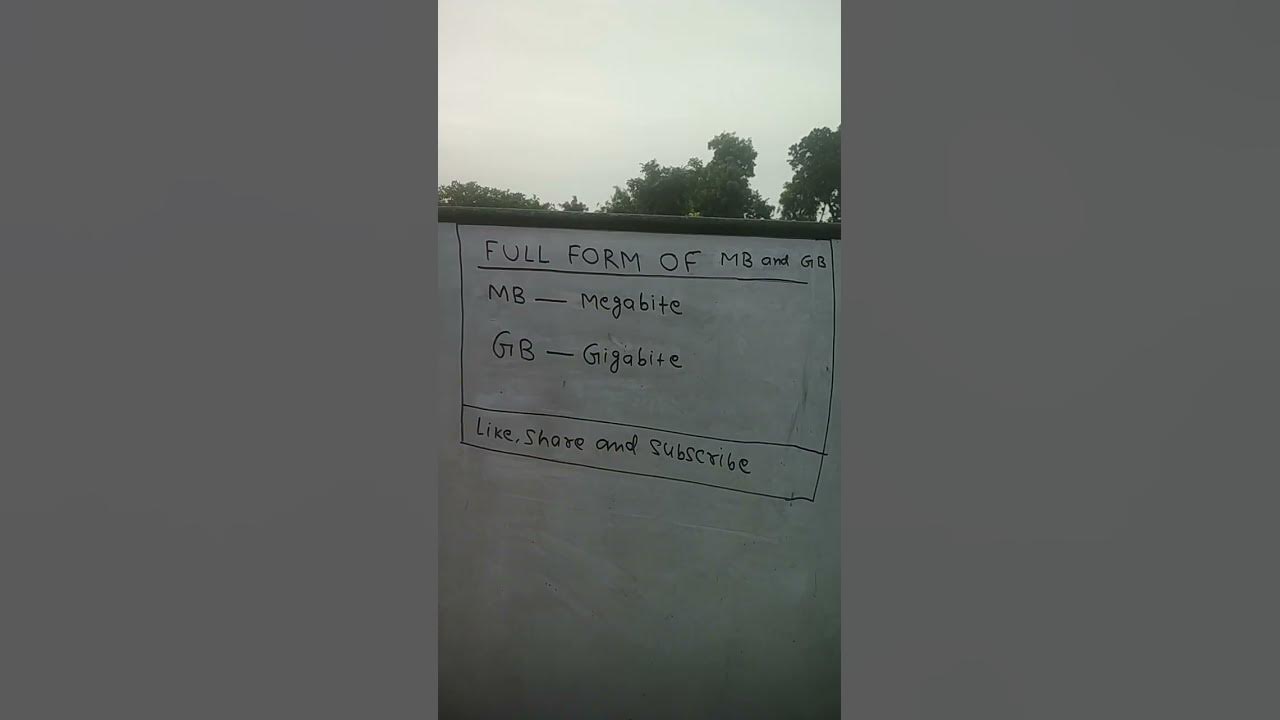 FULL FORM OF MB and GB
MB — Megabite
GB — Gigabite
Like, Share and Subscribe